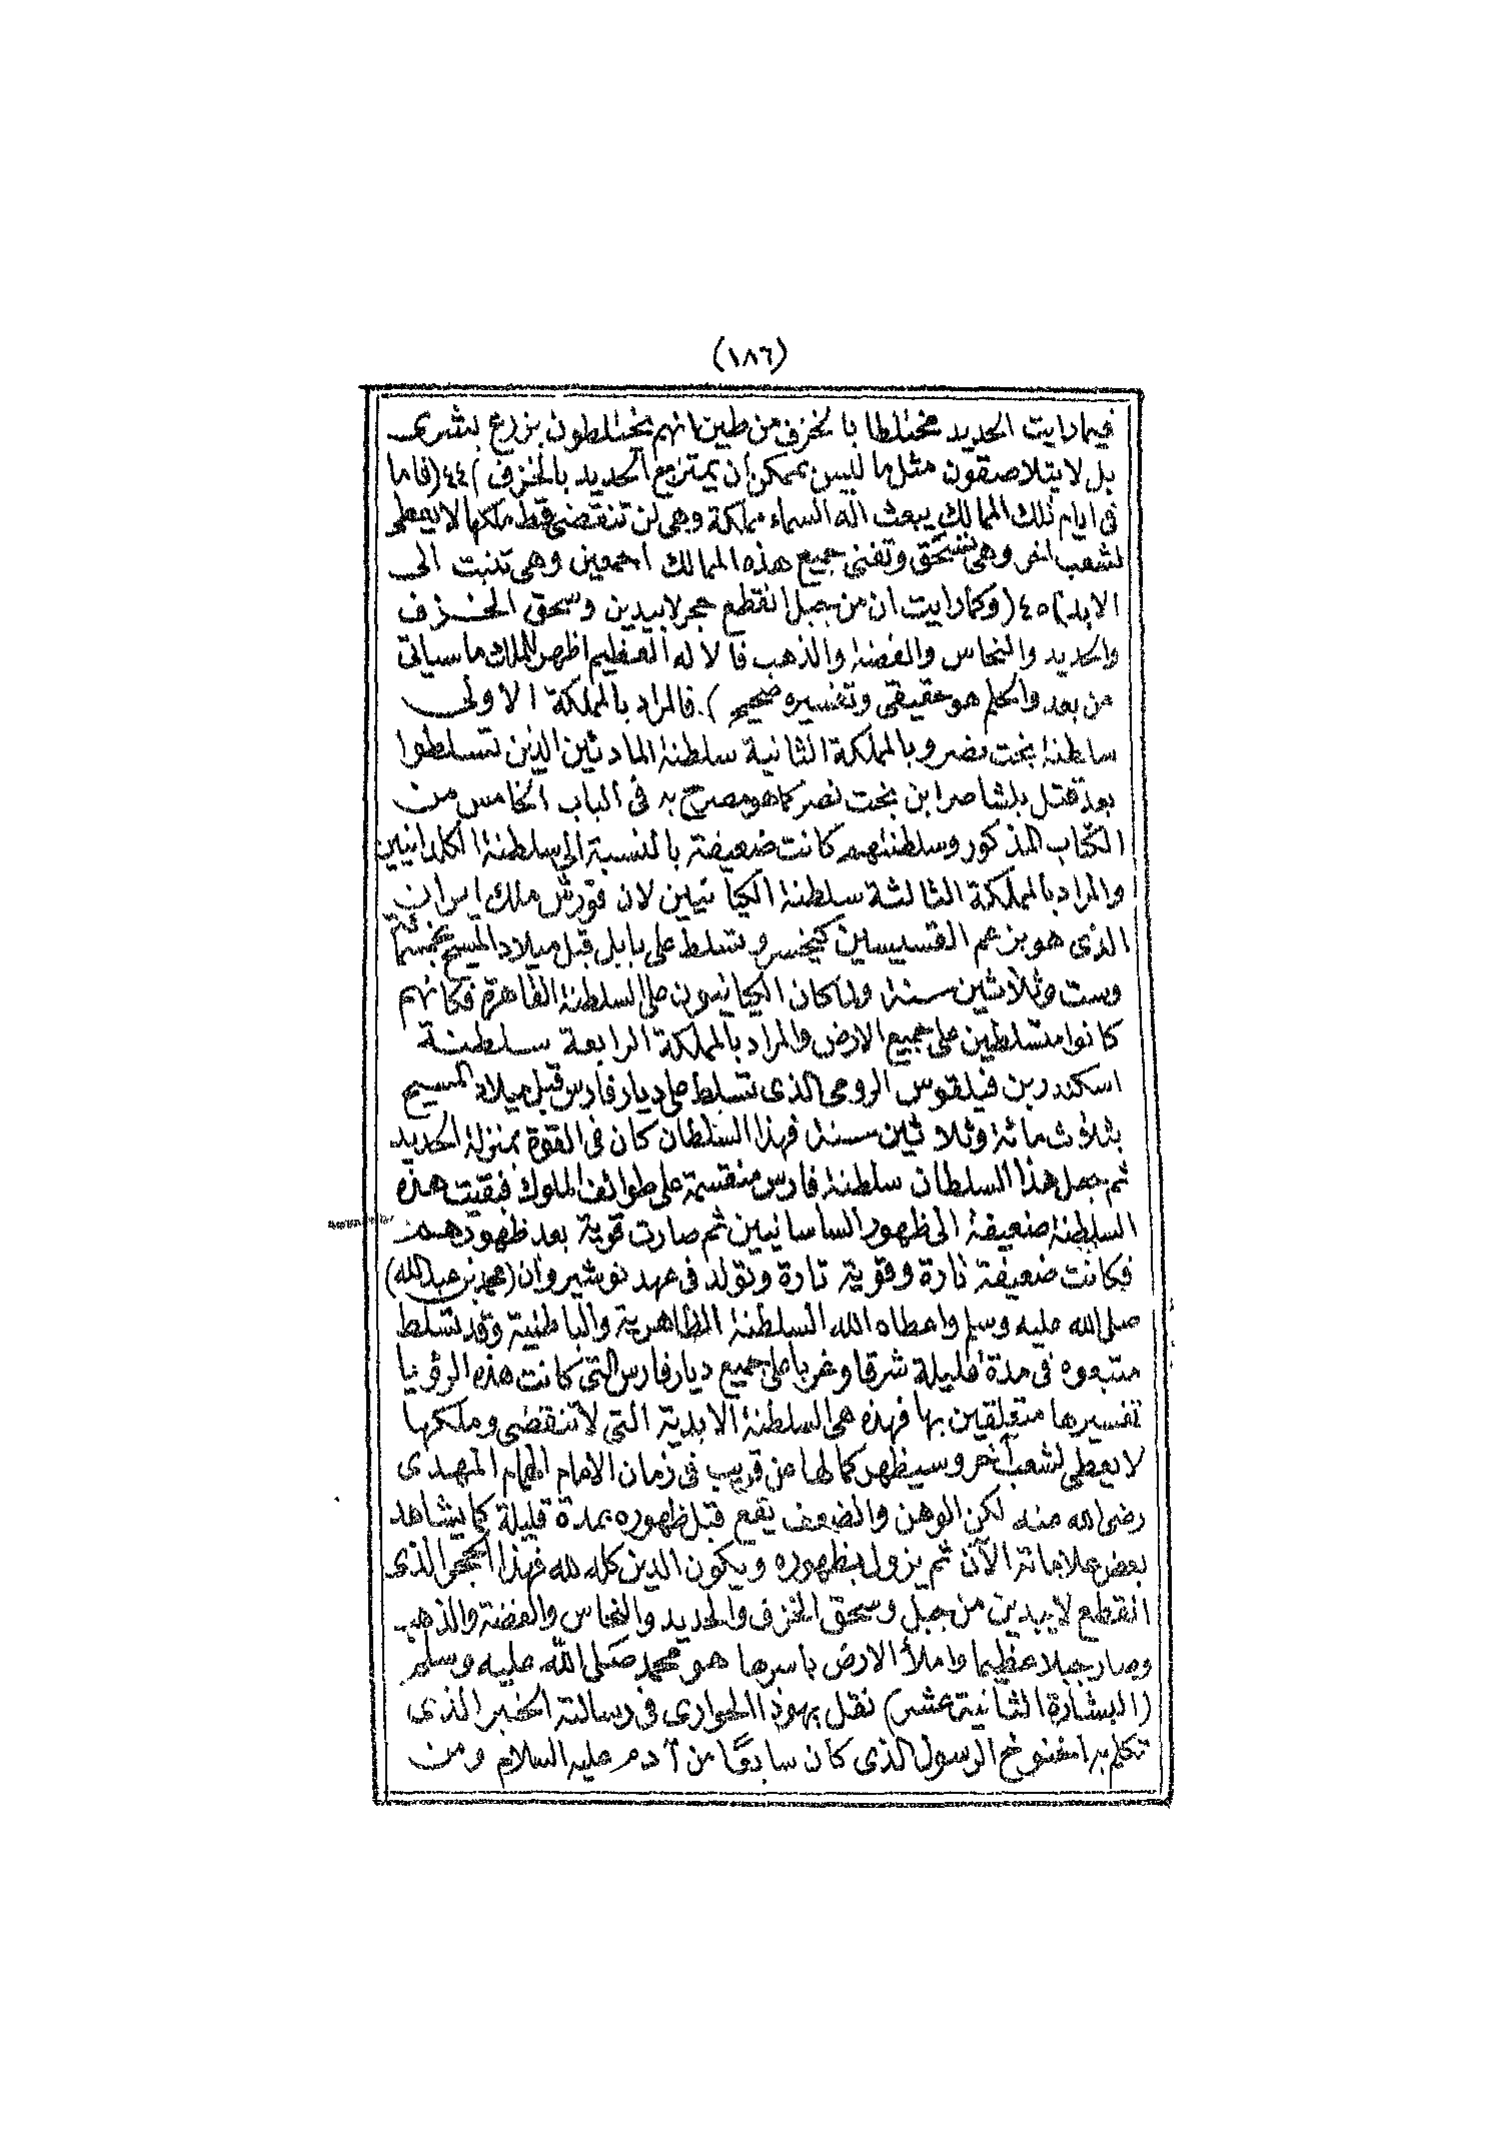 (١٨٦)
فيما رايت الحديد مختلطا بالخزف من طين انهم يختلطون بزرع بشرى
بل لا يتلاصقون مثل ما ليس بممكن ان يمتزج الحديد بالخزف )٤٤( فاما
فى ايام تلك الممالك يبعث اله السماء مملكة وهى لن تنقضى قط ملكها لا يعطى
لشعب اخر وهى تسحق وتفنى جميع هذه الممالك اجمعين وهى تثبت الى
الابد)٤٥( وكما رايت ان من جبل انقطع حجر لا بيدين وسحق الخزف
والحديد والنحاس والفضة والذهب فالاله العظيم اظهر للملك ما سياتى
من بعد والحلم هو حقيقى وتفسيره صحيح ). فالمراد بالمملكة الاولى
سلطنة بخت نصر وبالمملكة الثانية سلطنة المادئين الذين تسلطوا
بعد قتل بلشاصر ابن بخت نصر كما هو مصرح به فى الباب الخامس من
الكتاب المذكور وسلطنتهم كانت ضعيفة بالنسبة الى سلطنة الكلدانيين
والمراد بالمملكة الثالثة سلطنة الكيانيين لان قورش ملك ايران
الذى هو بزعم القسيسين كيخسرو تسلط على بابل قبل ميلاد المسيح بخمسمائة
وست وثلاثين سنة ولما كان الكيانيون على السلطنة القاهرة فكانهم
كانوا متسلطين على جميع الارض والمراد بالمملكة الرابعة سلطنة
اسكندر بن فيلقوس الرومى الذى تسلط على ديار فارس قبل ميلاد المسيح
بثلاث مائة وثلاثين سنة فهذا السلطان كان فى القوة بمنزلة الحديد
ثم جعل هذا السلطان سلطنة فارس منقسمة على طوائف الملوك فبقيت هذه
السلطنة ضعيفة الى ظهور الساسانيين ثم صارت قوية بعد ظهورهم
فكانت ضعيفة تارة وقوية تارة وتولد فى عهد نوشيروان (محمد بن عبد الله)
صلى الله عليه وسلم واعطاه الله السلطنة الظاهرية والباطنية وقد تسلط
متبعوه فى مدة قليلة شرقا وغربا على جميع ديار فارس التى كانت هذه الرؤيا
تفسيرها متعلقين بها فهذه هى السلطنة الابدية التى لا تنقضى وملكها
لا يعطى لشعب آخر وسيظهر كمالها عن قريب فى زمان الامام الهمام المهدى
رضى الله عنه لكن الوهن والضعف يقع قبل ظهوره بمدة قليلة كما يشاهد
بعض علاماته الآن ثم يزول بظهوره ويكون الدين كله لله فهذا الحجر الذى
انقطع لا بيدين من جبل وسحق الخزف والحديد والنحاس والفضة والذهب
وصار جبلا عظيما واملأ الارض باسرها هو محمد صلى الله عليه وسلم
(البشارة الثانية عشر) نقل يهوذا الحوارى فى رسالته الخبر الذى
تكلم به اخنوخ الرسول الذى كان سابعًا من آدم عليه السلام ومن